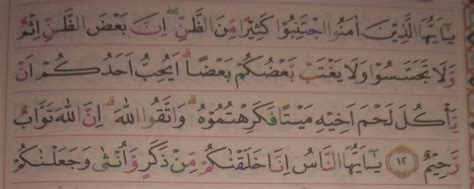 يٰٓاَيُّهَا الَّذِيْنَ اٰمَنُوا اجْتَنِبُوْا كَثِيْرًا مِّنَ الظَّنِّۖ اِنَّ بَعْضَ الظَّنِّ اِثْمٌ
وَّلَا تَجَسَّسُوْا وَلَا يَغْتَبْ بَّعْضُكُمْ بَعْضًاۗ اَيُحِبُّ اَحَدُكُمْ اَنْ
يَّأْكُلَ لَحْمَ اَخِيْهِ مَيْتًا فَكَرِهْتُمُوْهُۗ وَاتَّقُوا اللّٰهَۗ اِنَّ اللّٰهَ تَوَّابٌ
رَّحِيْمٌ ١٢ يٰٓاَيُّهَا النَّاسُ اِنَّا خَلَقْنٰكُمْ مِّنْ ذَكَرٍ وَّاُنْثٰى وَجَعَلْنٰكُمْ